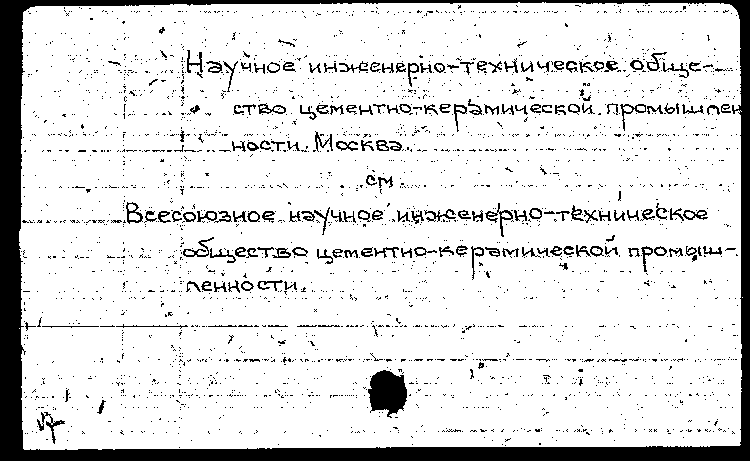 Научное инженерно-техническое обще-
ство цементно-керамической промышлен
ности. Москва.
см
Всесоюзное научное инженерно-техническое
общество цементно-керамической промыш-
ленности.